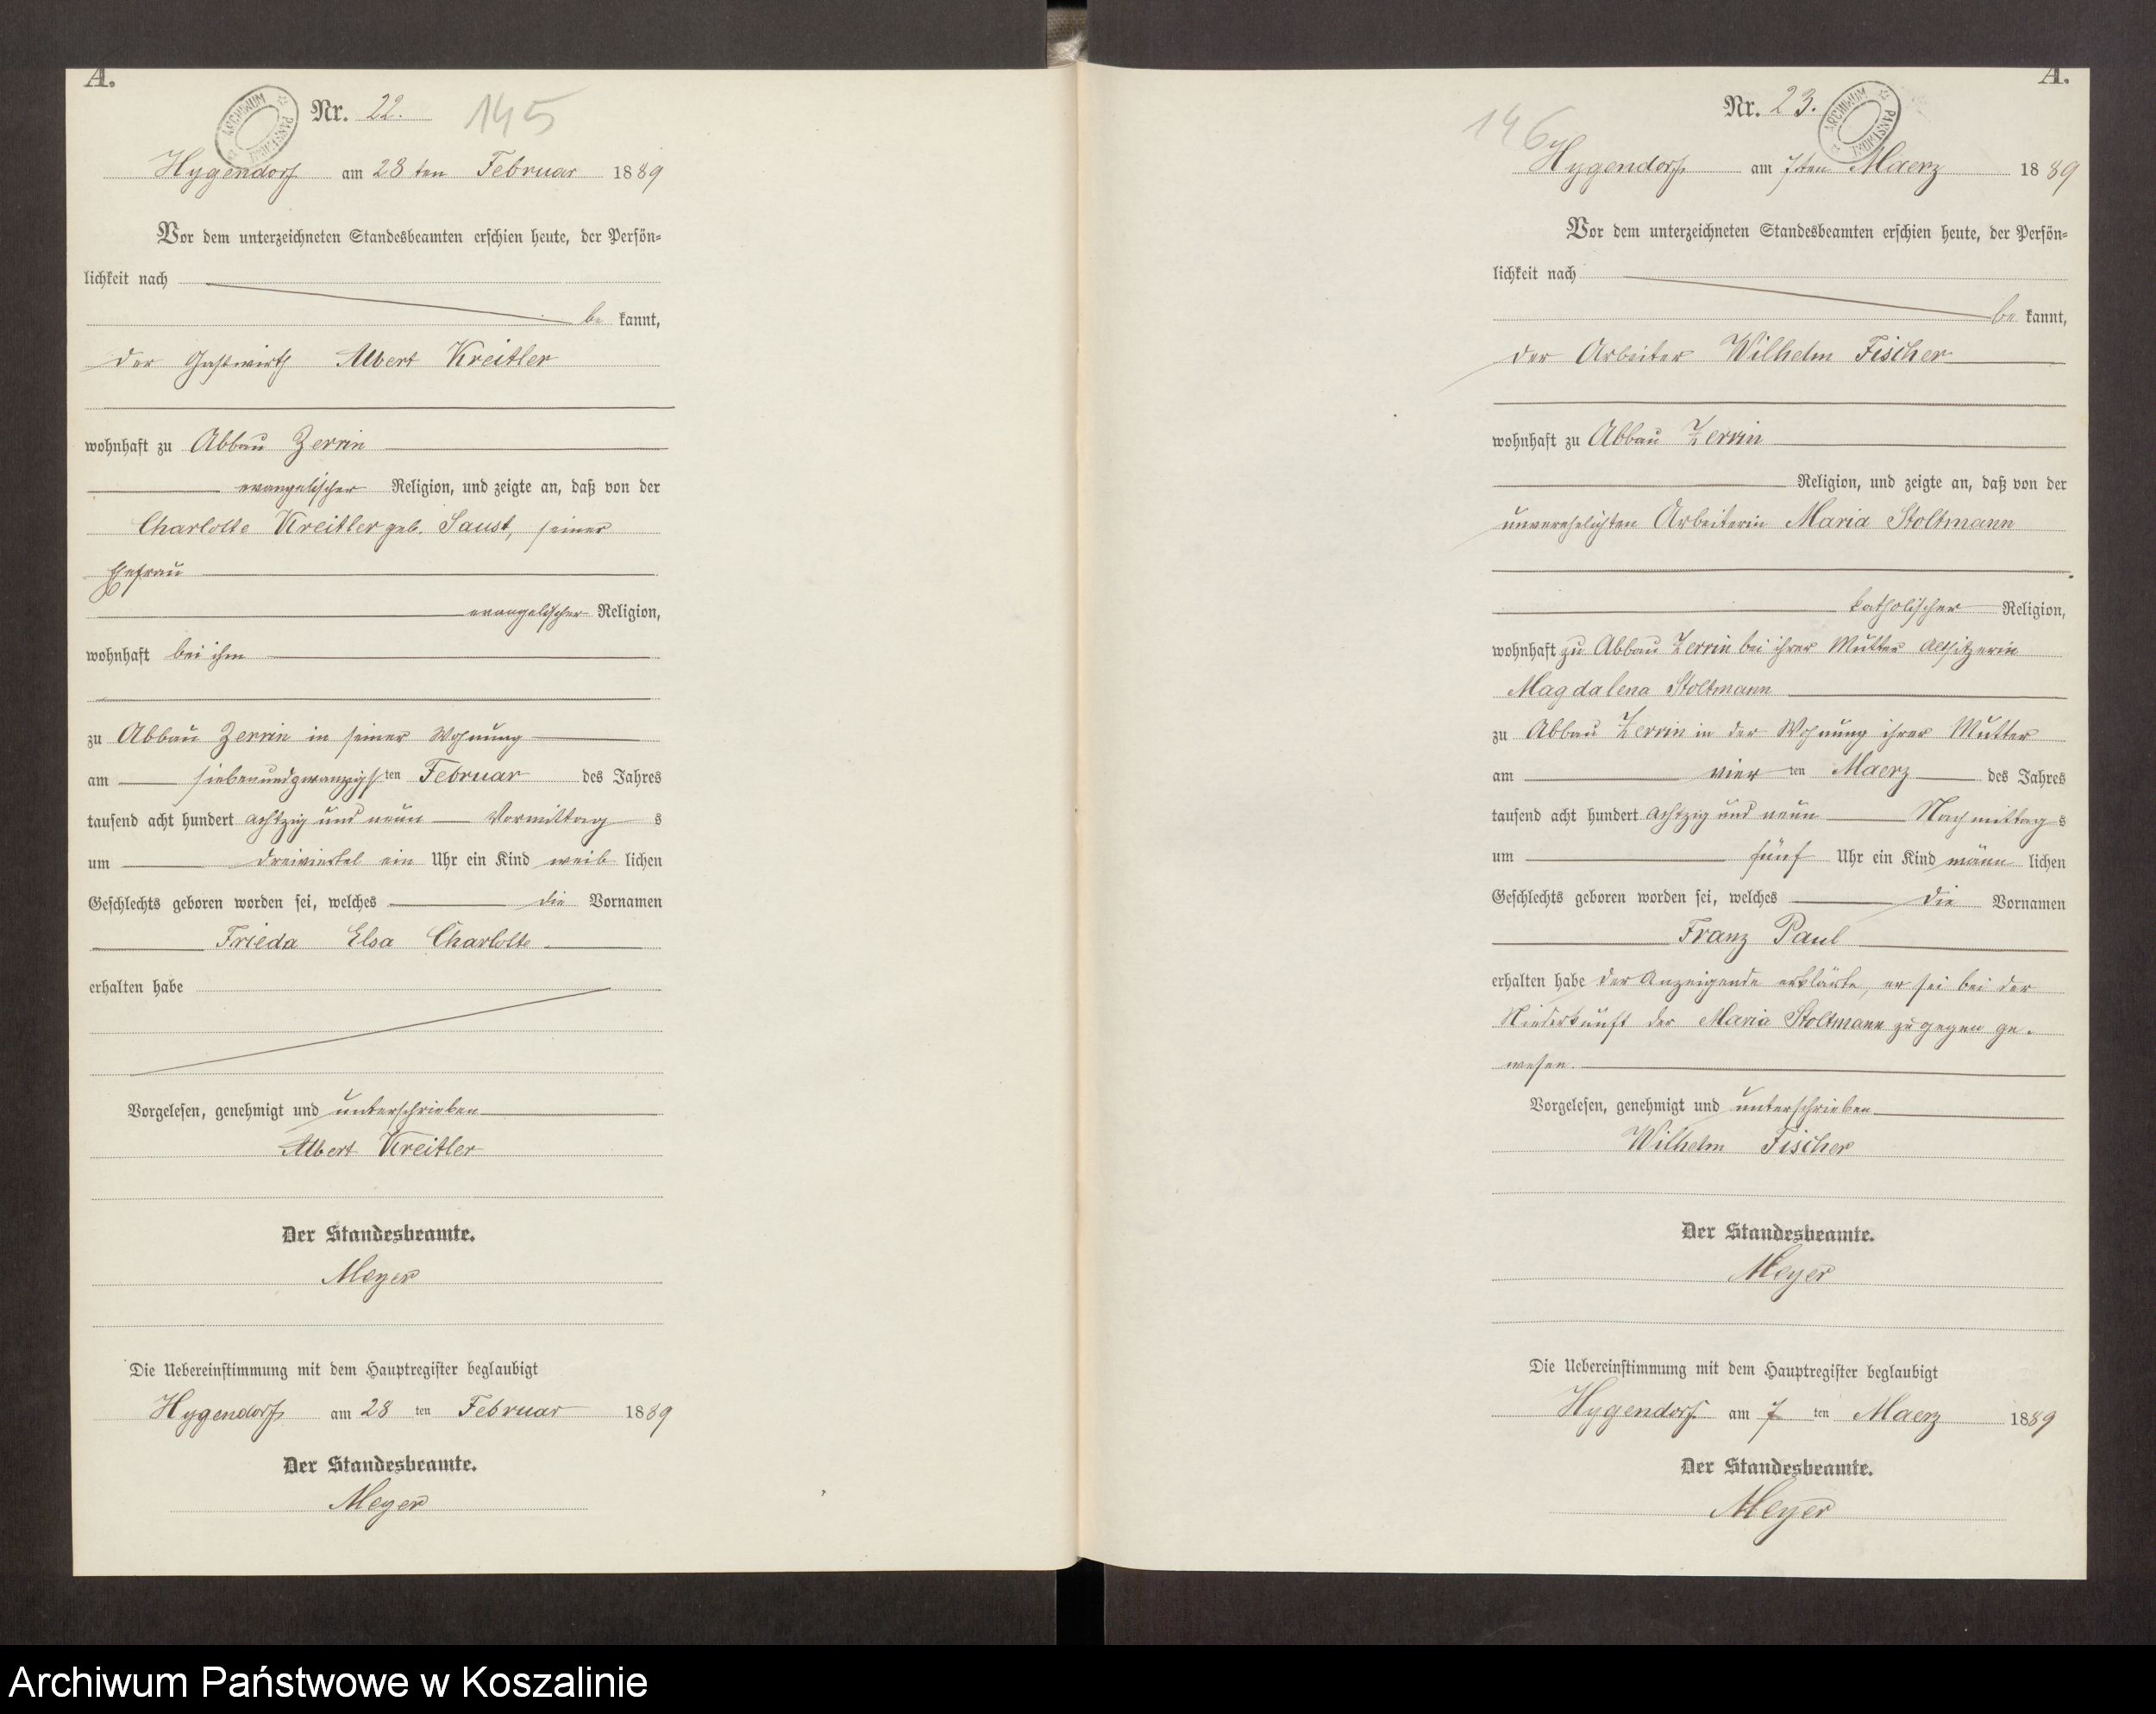 A.
Nr. 22. 145
ARCHIWUM PAŃSTWOWE
Hygendorf am 28 ten Februar 1889
Vor dem unterzeichneten Standesbeamten erschien heute, der Persön-
lichkeit nach
be kannt,
der Gastwirth Albert Kreitler
wohnhaft zu Abbau Zerrin
evangelischer Religion, und zeigte an, daß von der
Charlotte Kreitler geb. Saust, seiner
Ehefrau
evangelischer Religion,
wohnhaft bei ihm
zu Abbau Zerrin in seiner Wohnung
am siebenundzwanzigsten Februar des Jahres
tausend acht hundert achtzig und neun Vormittag s
um dreiviertel ein Uhr ein Kind weib lichen
Geschlechts geboren worden sei, welches die Vornamen
Frieda Elsa Charlotte
erhalten habe
Vorgelesen, genehmigt und unterschrieben
Albert Kreitler
Der Standesbeamte.
Meyer
Die Uebereinstimmung mit dem Hauptregister beglaubigt
Hygendorf am 28 ten Februar 1889
Der Standesbeamte.
Meyer
A.
146 Nr. 23.
ARCHIWUM PAŃSTWOWE
Hygendorf am 7ten Maerz 1889
Vor dem unterzeichneten Standesbeamten erschien heute, der Persön-
lichkeit nach
be kannt,
der Arbeiter Wilhelm Fischer
wohnhaft zu Abbau Zerrin
Religion, und zeigte an, daß von der
unverehelichten Arbeiterin Maria Stoltmann
katholischer Religion,
wohnhaft zu Abbau Zerrin bei ihrer Mutter Altsitzerin
Magdalena Stoltmann
zu Abbau Zerrin in der Wohnung ihrer Mutter
am vier ten Maerz des Jahres
tausend acht hundert achtzig und neun Nachmittag s
um fünf Uhr ein Kind männ lichen
Geschlechts geboren worden sei, welches die Vornamen
Franz Paul
erhalten habe der Anzeigende erklärte, er sei bei der
Niederkunft der Maria Stoltmann zugegen ge-
wesen.
Vorgelesen, genehmigt und unterschrieben
Wilhelm Fischer
Der Standesbeamte.
Meyer
Die Uebereinstimmung mit dem Hauptregister beglaubigt
Hygendorf am 7 ten Maerz 1889
Der Standesbeamte.
Meyer
Archiwum Państwowe w Koszalinie